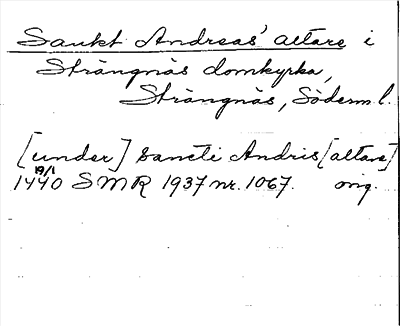 Sankt Andreas' altare i
Strängnäs domkyrka,
Strängnäs, Söderm l.
[under] sancti Andris [altare]
19/1
1440 SMR 1937 nr. 1067. orig.